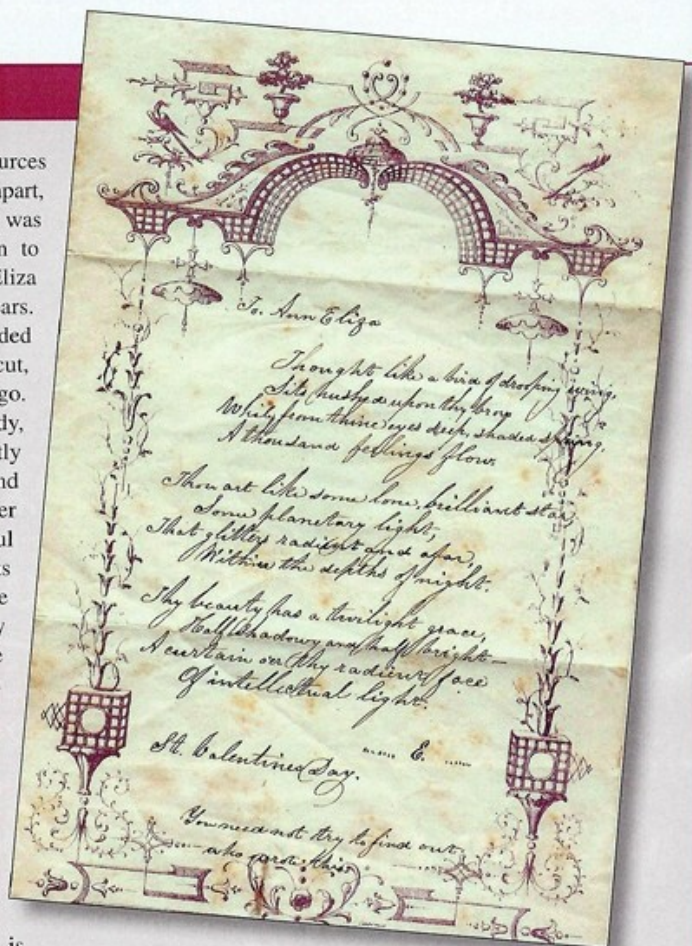 urces
apart,
was
n to
Eliza
ars.
ded
cut,
go.
dy,
tly
nd
er
ul
ts
e
y
e
is
To. Ann Eliza
Thought like a bird of drooping wing,
Sits hushed upon thy brow
While from thine eyes deep, shaded spring,
A thousand feelings flow.
Thou art like some lone, brilliant star
Some planetary light,
That glitters radient and afar,
Within the depths of night.
Thy beauty has a twilight grace,
Half shadowy and half bright—
A curtain oer thy radient face
Of intellectual light.
...... E. ......
St. Valentines Day.
You need not try to find out
who wrote this